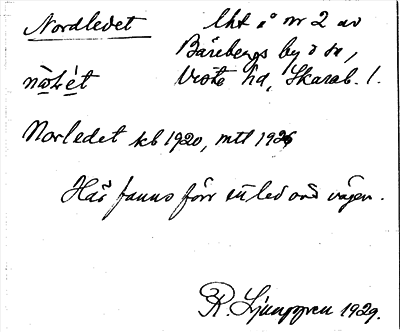 Nordledet
lht å nr 2 av
Bärebergs by o sn,
Viste hd, Skarab. l.
Norledet kb 1920, mtl 1926
Här fanns förr en led över vägen.
R. Ljunggren 1929.